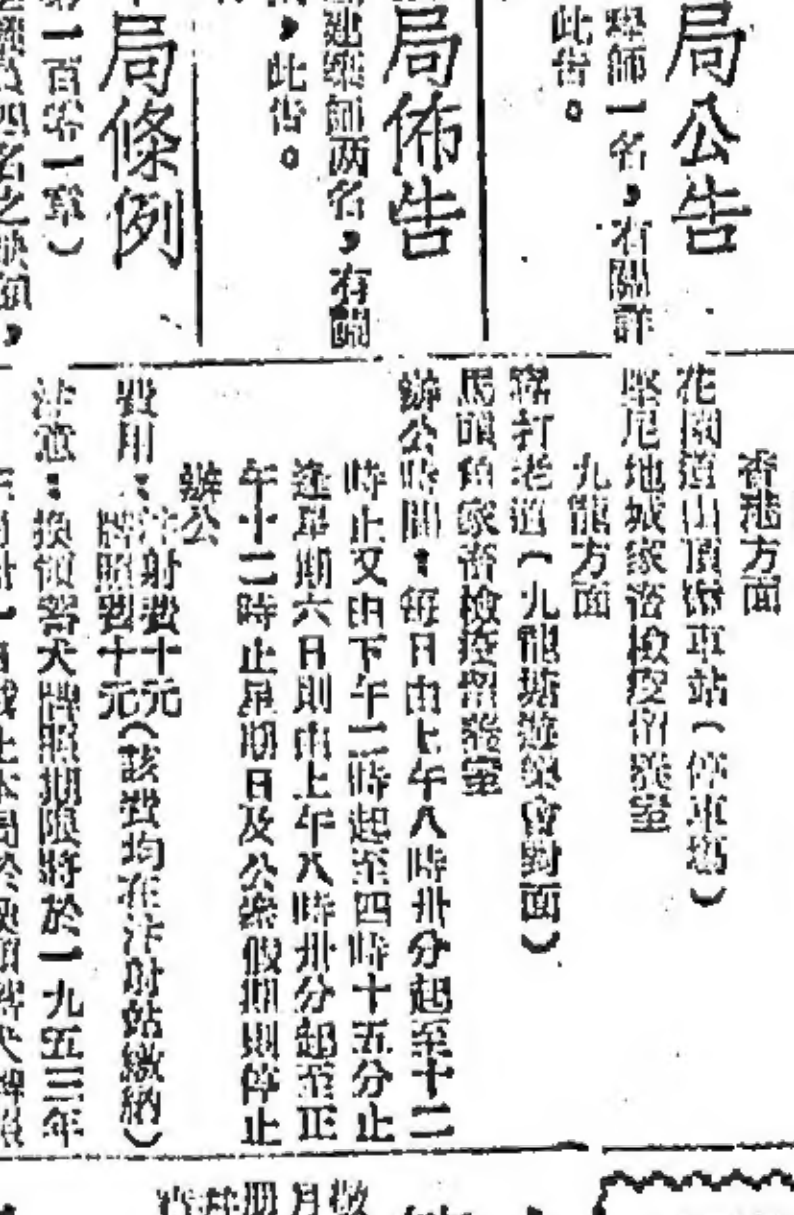 局公告
師一名，有關詳
此告。
局佈告
建築師两名，有關
，此告。
局條例
第一百零一章）
四名之缺額，
香港方面
花園道山頂纜車站（停車場）
堅尼地城家畜檢疫留養室
九龍方面
窩打老道（九龍塘遊樂會對面）
馬頭角家畜檢疫留養室
辦公時間：每日由上午八時卅分起至十二
時止又由下午二時起至四時十五分止
逢星期六日則由上午八時卅分起至正
午十二時止星期日及公衆假期則停止
辦公
費用：注射費十元（該費均在注射站繳納）
牌照費十元
注意：換領畜犬牌照期限將於一九五三年